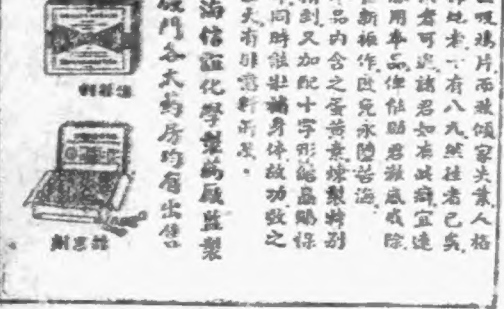 吸鴉片而致傾家失業人格
地者十有八九然往者已矣
者可追諸君如有此癖宜速
用本品俾能助君澈底戒除
新振作以免永墮苦海
品內含之蛋黃素煉製特別
精到又加配十字形結晶賜保
同時能壯補身体故功效之
大有非意料所及。
海信誼化學製藥廠監製
門各大藥房均有出售
劑射注